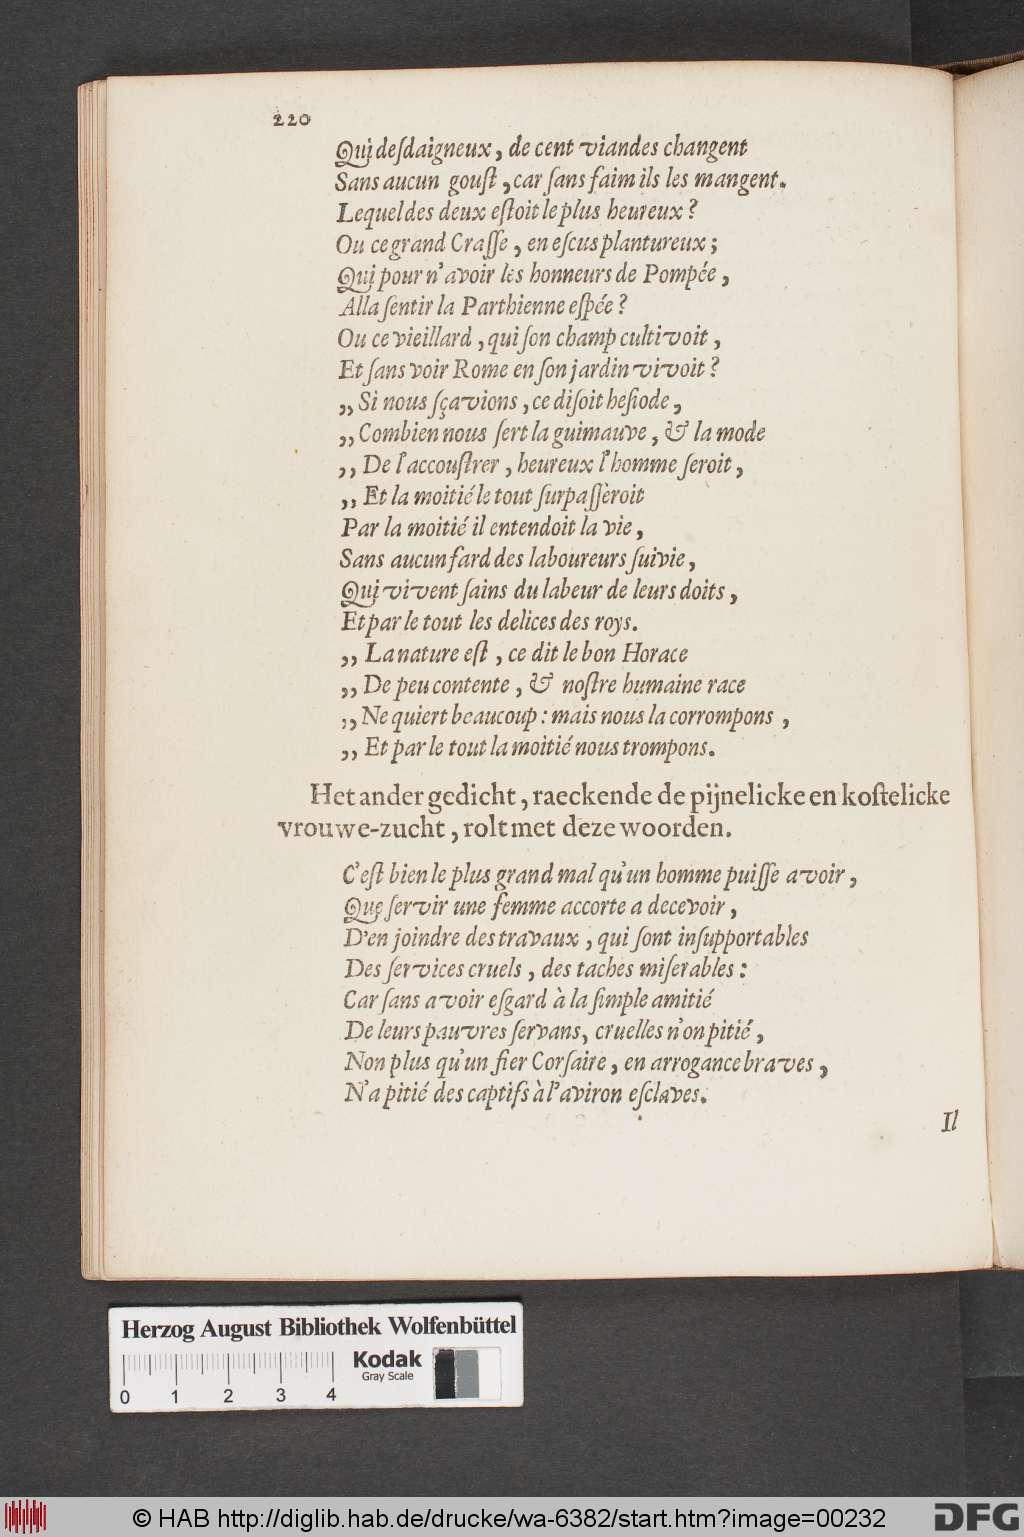 220
Qui desdaigneux, de cent viandes changent
Sans aucun goust, car sans faim ils les mangent.
Lequel des deux estoit le plus heureux?
Ou ce grand Crasse, en escus plantureux;
Qui pour n'avoir les honneurs de Pompée,
Alla sentir la Parthienne espée?
Ou ce vieillard, qui son champ cultivoit,
Et sans voir Rome en son jardin vivoit?
„ Si nous sçavions, ce disoit hesiode,
„ Combien nous sert la guimauve, & la mode
„ De l'accoustrer, heureux l'homme seroit,
„ Et la moitié le tout surpasseroit
Par la moitié il entendoit la vie,
Sans aucun fard des laboureurs suivie,
Qui vivent sains du labeur de leurs doits,
Et par le tout les delices des roys.
„ La nature est, ce dit le bon Horace
„ De peu contente, & nostre humaine race
„ Ne quiert beaucoup: mais nous la corrompons,
„ Et par le tout la moitié nous trompons.
Het ander gedicht, raeckende de pijnelicke en kostelicke
vrouwe-zucht, rolt met deze woorden.
C'est bien le plus grand mal qu'un homme puisse avoir,
Que servir une femme accorte a decevoir,
D'en joindre des travaux, qui sont insupportables
Des services cruels, des taches miserables:
Car sans avoir esgard à la simple amitié
De leurs pauvres servans, cruelles n'on pitié,
Non plus qu'un fier Corsaire, en arrogance braves,
N'a pitié des captifs à l'aviron esclaves.
Il
Herzog August Bibliothek Wolfenbüttel
Kodak
Gray Scale
0 1 2 3 4
© HAB http://diglib.hab.de/drucke/wa-6382/start.htm?image=00232
DFG